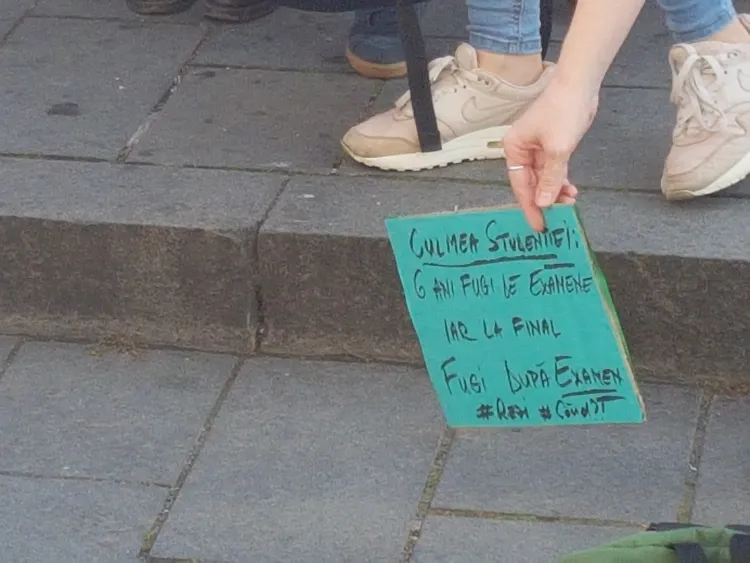 CULMEA STUDENȚIEI:
6 ANI FUGI DE EXAMENE
IAR LA FINAL
FUGI DUPĂ EXAMEN
#REZI